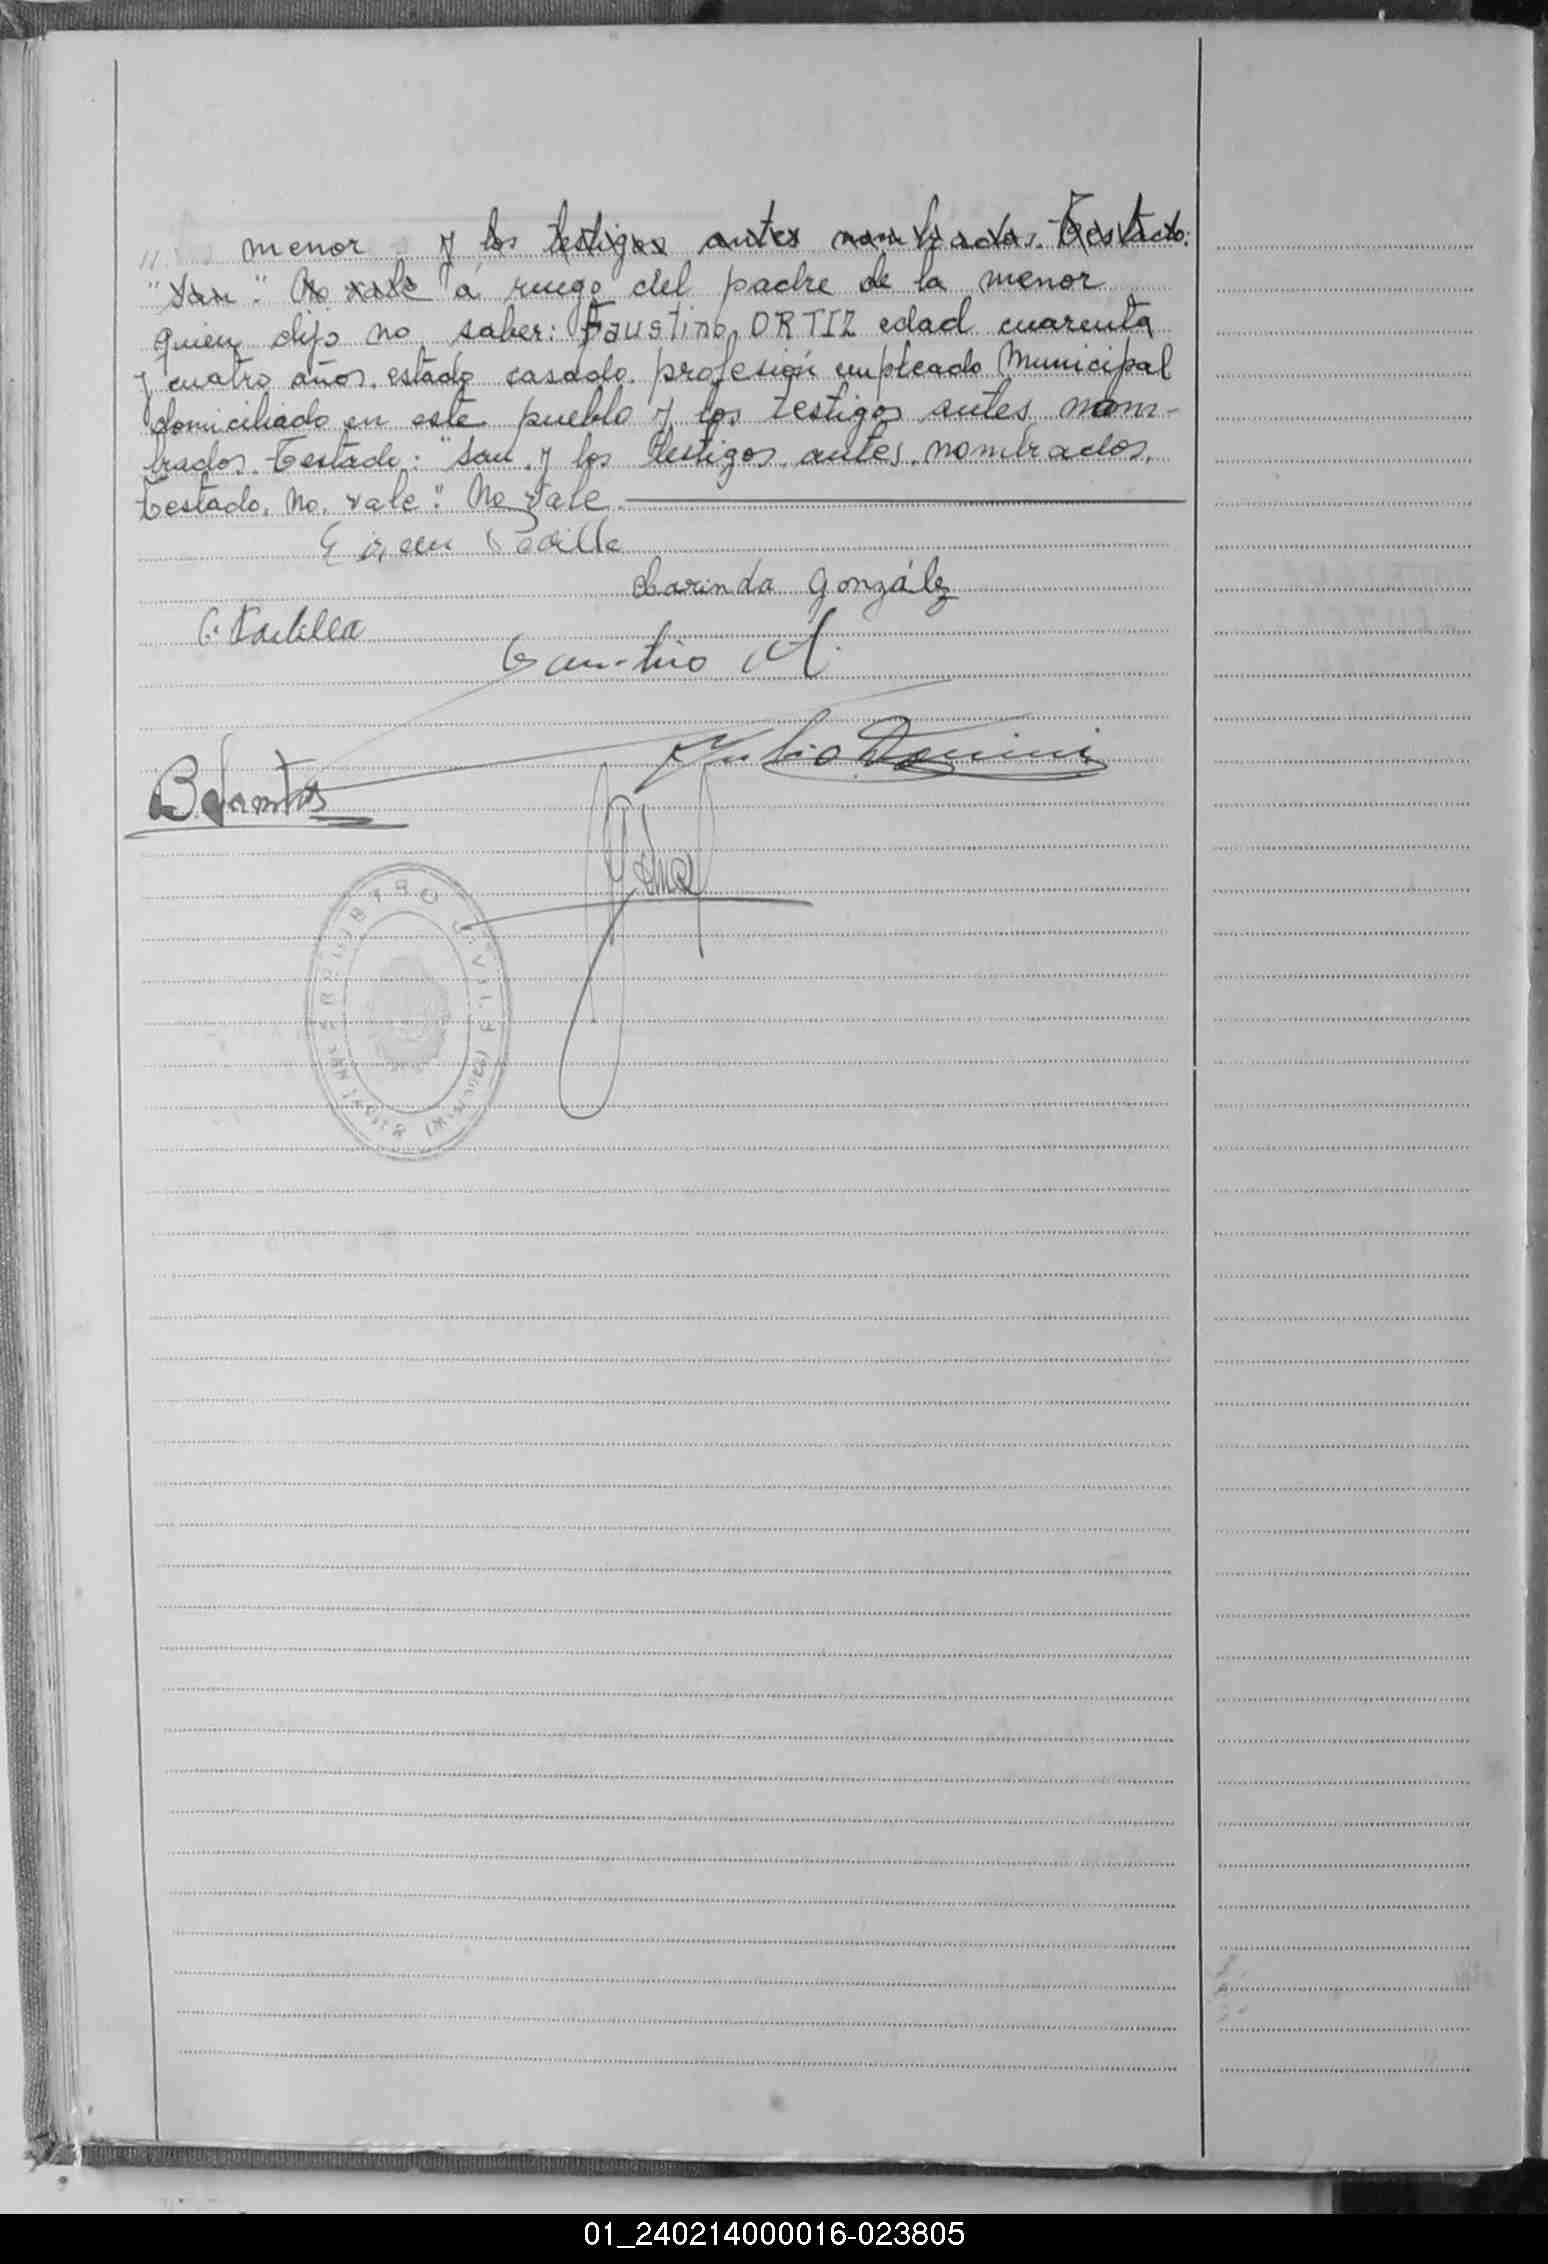 menor y los testigos antes nombrados. Testado:
"San". No vale a ruego del padre de la menor
quien dijo no saber: Faustino ORTIZ edad cuarenta
y cuatro años. estado casado. profesión empleado Municipal
domiciliado en este pueblo y los testigos antes nom-
brados. Testado: "San y los testigos antes nombrados.
Testado. No. vale". No vale.
Padilla
Clarinda González
C. Padilla
Faustino
Julio
B. Santos
REGISTRO CIVIL
01_240214000016-023805